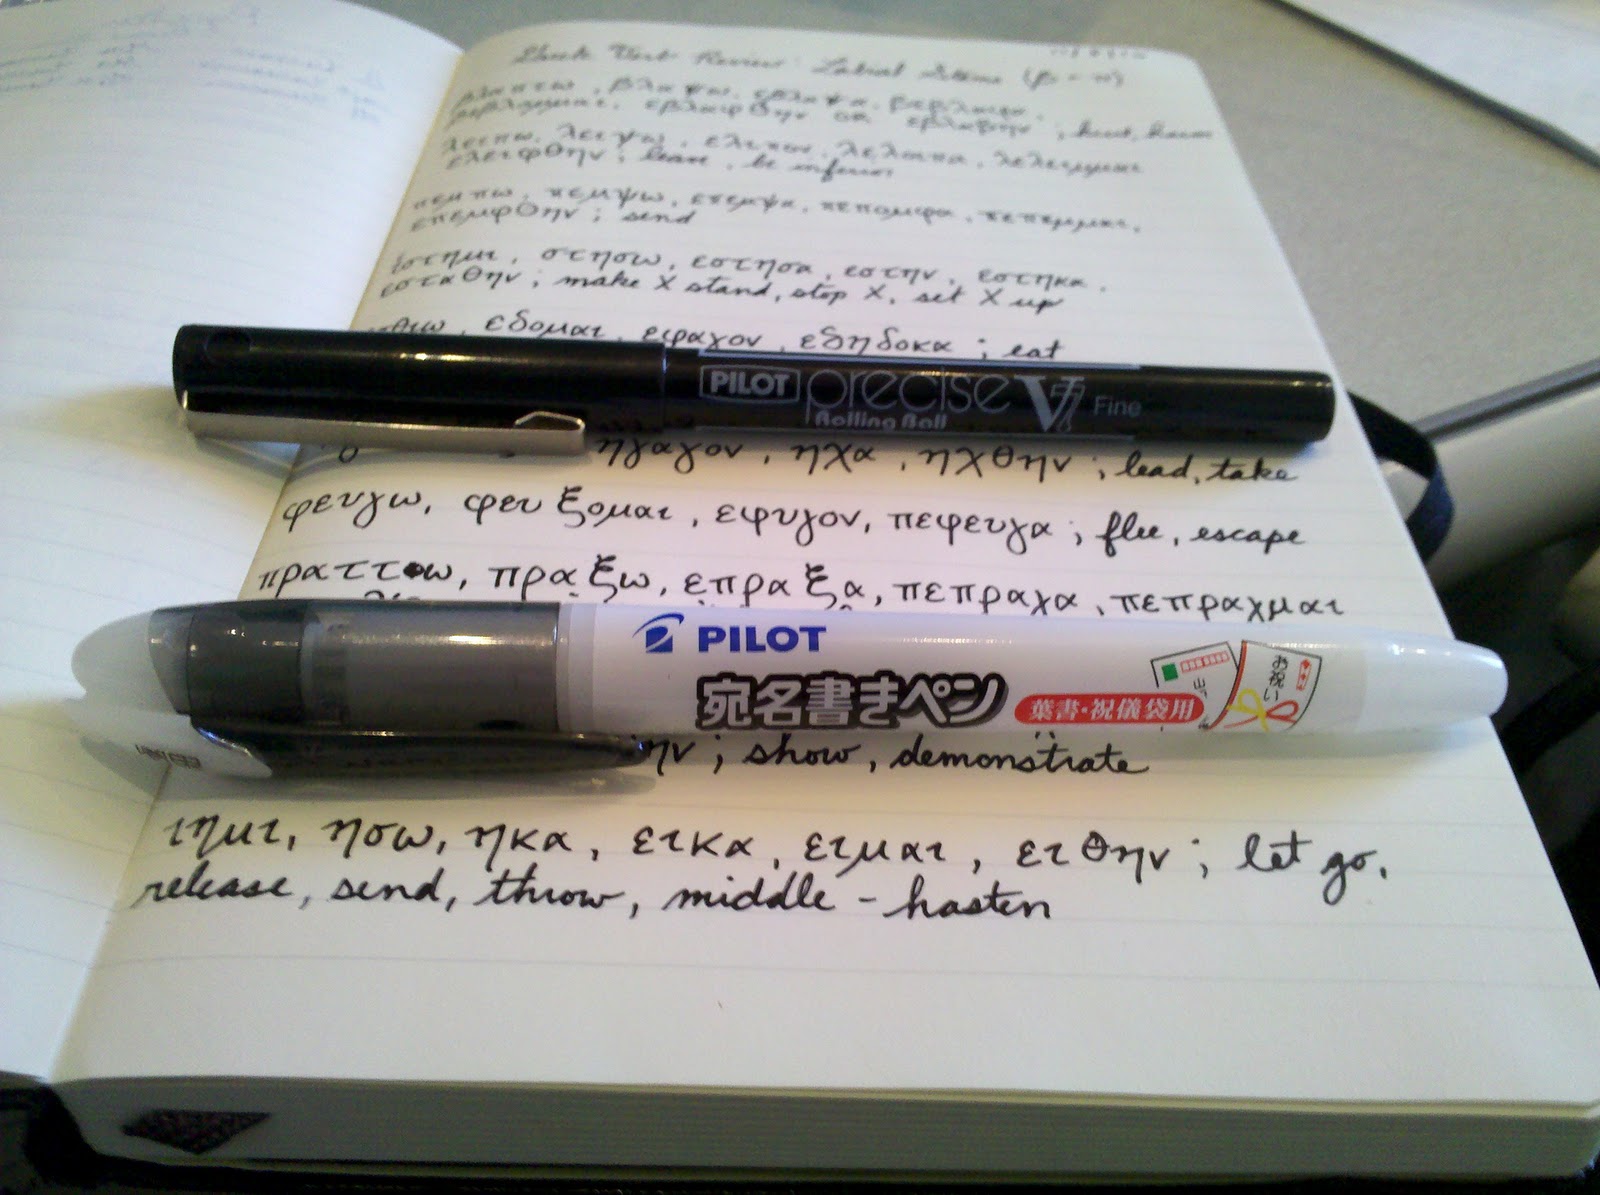 Greek Verb Review: Labial Stems (β - π)
βλαπτω, βλαψω, εβλαψα, βεβλαφα,
βεβλαμμαι, εβλαφθην or εβλαβην; hurt, harm
λειπω, λειψω, ελιπον, λελοιπα, λελειμμαι
ελειφθην; leave, be inferior
πεμπω, πεμψω, επεμψα, πεπομφα, πεπεμμαι,
επεμφθην; send
ἱστημι, στησω, εστησα, εστην, εστηκα,
εσταθην; make X stand, stop X, set X up
εδομαι, εφαγον, εδηδοκα; eat
PILOT precise V5 Fine
Rolling Ball
ηγαγον, ηχα, ηχθην; lead, take
φευγω, φευξομαι, εφυγον, πεφευγα; flee, escape
πραττω, πραξω, επραξα, πεπραχα, πεπραγμαι
PILOT
宛名書きペン
葉書・祝儀袋用
お祝い
ην; show, demonstrate
ιημι, ησω, ηκα, εικα, ειμαι, ειθην; let go,
release, send, throw, middle - hasten